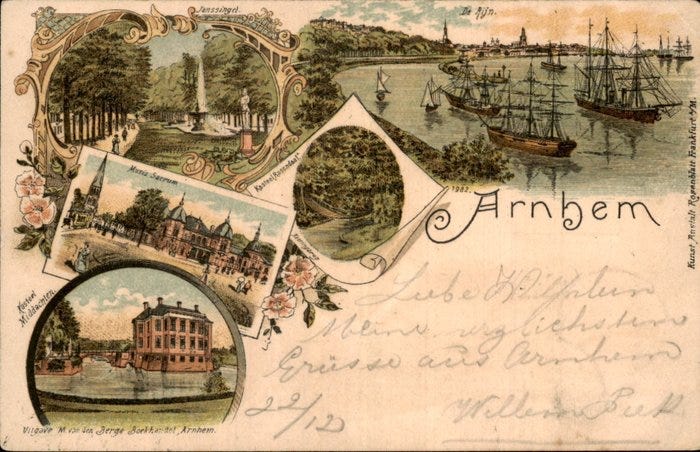 Janssingel.
De Rijn.
Musis Sacrum
Kasteel Rosendaal
1982.
Arnhem
Kasteel
Middachten.
Kunst-Anstalt Rosenblatt Frankfurt a/M.
Liebe
Meine
Grüsse aus Arnhem
22/12
Willem
Uitgave M. van den Berge Boekhandel, Arnhem.